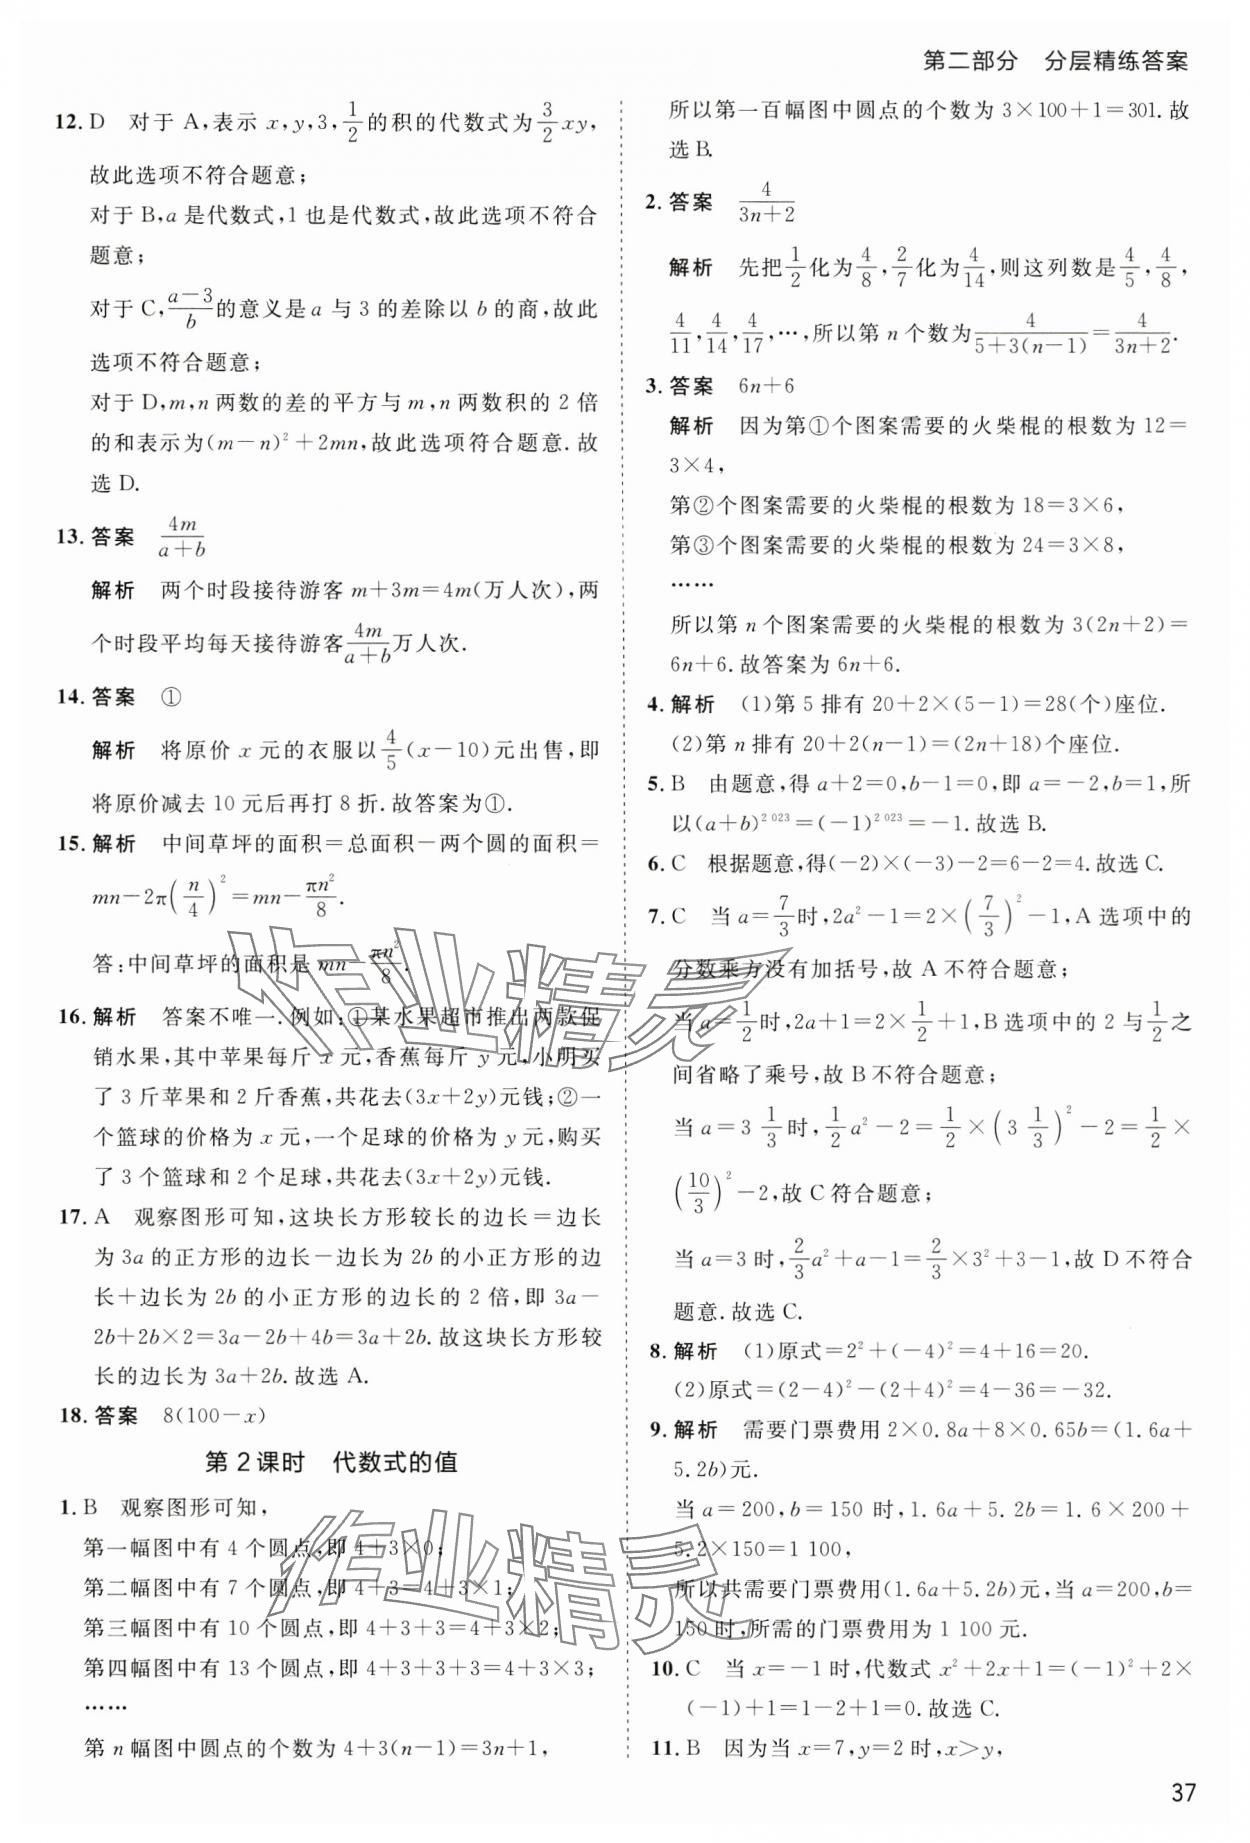 第二部分 分层精练答案
12. D 对于 A,表示 x,y,3,1/2 的积的代数式为 3/2 xy,
故此选项不符合题意;
对于 B,a 是代数式,1 也是代数式,故此选项不符合
题意;
对于 C,(a-3)/b 的意义是 a 与 3 的差除以 b 的商,故此
选项不符合题意;
对于 D,m,n 两数的差的平方与 m,n 两数积的 2 倍
的和表示为(m-n)²+2mn,故此选项符合题意.故
选 D.
13. 答案 4m/(a+b)
解析 两个时段接待游客 m+3m=4m(万人次),两
个时段平均每天接待游客 4m/(a+b) 万人次.
14. 答案 ①
解析 将原价 x 元的衣服以 4/5(x-10)元出售,即
将原价减去 10 元后再打 8 折.故答案为①.
15. 解析 中间草坪的面积=总面积-两个圆的面积=
mn-2π(n/4)²=mn-πn²/8.
答:中间草坪的面积是 mn-πn²/8.
16. 解析 答案不唯一.例如:①某水果超市推出两款促
销水果,其中苹果每斤 x 元,香蕉每斤 y 元,小明买
了 3 斤苹果和 2 斤香蕉,共花去(3x+2y)元钱;②一
个篮球的价格为 x 元,一个足球的价格为 y 元,购买
了 3 个篮球和 2 个足球,共花去(3x+2y)元钱.
17. A 观察图形可知,这块长方形较长的边长=边长
为 3a 的正方形的边长-边长为 2b 的小正方形的边
长+边长为 2b 的小正方形的边长的 2 倍,即 3a-
2b+2b×2=3a-2b+4b=3a+2b.故这块长方形较
长的边长为 3a+2b.故选 A.
18. 答案 8(100-x)
第 2 课时 代数式的值
1. B 观察图形可知,
第一幅图中有 4 个圆点,即 4+3×0;
第二幅图中有 7 个圆点,即 4+3=4+3×1;
第三幅图中有 10 个圆点,即 4+3+3=4+3×2;
第四幅图中有 13 个圆点,即 4+3+3+3=4+3×3;
……
第 n 幅图中圆点的个数为 4+3(n-1)=3n+1,
所以第一百幅图中圆点的个数为 3×100+1=301.故
选 B.
2. 答案 4/(3n+2)
解析 先把 1/2 化为 4/8,2/7 化为 4/14,则这列数是 4/5,4/8,
4/11,4/14,4/17,…,所以第 n 个数为 4/(5+3(n-1))=4/(3n+2).
3. 答案 6n+6
解析 因为第①个图案需要的火柴棍的根数为 12=
3×4,
第②个图案需要的火柴棍的根数为 18=3×6,
第③个图案需要的火柴棍的根数为 24=3×8,
……
所以第 n 个图案需要的火柴棍的根数为 3(2n+2)=
6n+6.故答案为 6n+6.
4. 解析 (1)第 5 排有 20+2×(5-1)=28(个)座位.
(2)第 n 排有 20+2(n-1)=(2n+18)个座位.
5. B 由题意,得 a+2=0,b-1=0,即 a=-2,b=1,所
以(a+b)^2 023=(-1)^2 023=-1.故选 B.
6. C 根据题意,得(-2)×(-3)-2=6-2=4.故选 C.
7. C 当 a=7/3 时,2a²-1=2×(7/3)²-1,A 选项中的
分数乘方没有加括号,故 A 不符合题意;
当 a=1/2 时,2a+1=2×1/2+1,B 选项中的 2 与 1/2 之
间省略了乘号,故 B 不符合题意;
当 a=3 1/3 时,1/2 a²-2=1/2×(3 1/3)²-2=1/2×
(10/3)²-2,故 C 符合题意;
当 a=3 时,2/3 a²+a-1=2/3×3²+3-1,故 D 不符合
题意.故选 C.
8. 解析 (1)原式=2²+(-4)²=4+16=20.
(2)原式=(2-4)²-(2+4)²=4-36=-32.
9. 解析 需要门票费用 2×0.8a+8×0.65b=(1.6a+
5.2b)元.
当 a=200,b=150 时,1.6a+5.2b=1.6×200+
5.2×150=1 100,
所以共需要门票费用(1.6a+5.2b)元,当 a=200,b=
150 时,所需的门票费用为 1 100 元.
10. C 当 x=-1 时,代数式 x²+2x+1=(-1)²+2×
(-1)+1=1-2+1=0.故选 C.
11. B 因为当 x=7,y=2 时,x>y,
37
作业精灵
作业精灵